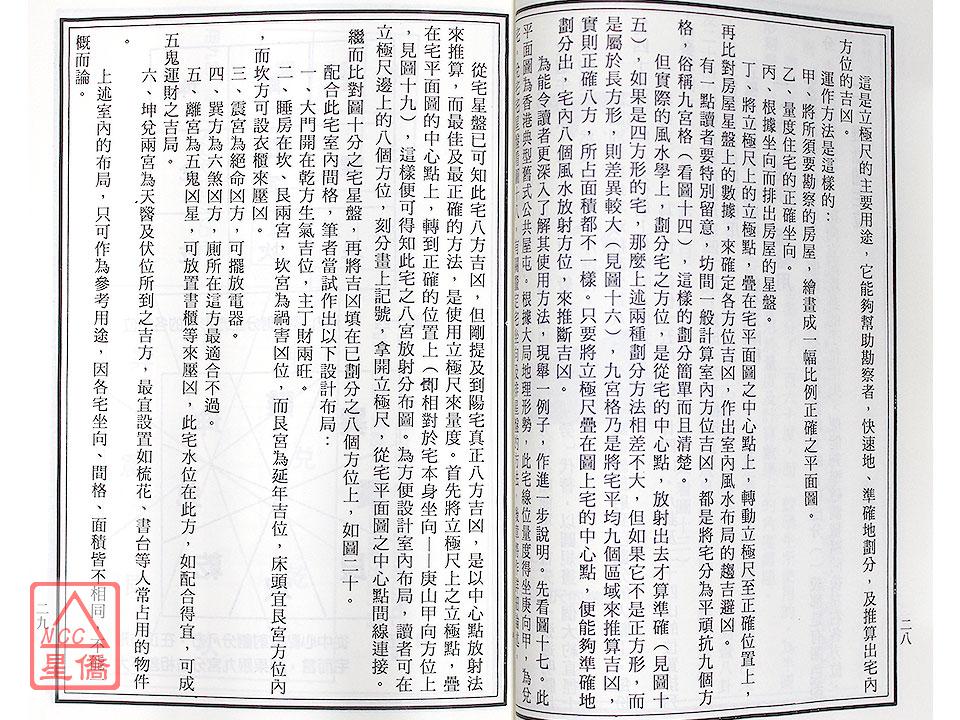 這是立極尺的主要用途，它能夠幫助勘察者，快速地、準確地劃分，及推算出宅內
方位的吉凶。
運作方法是這樣的：
甲、將所須要勘察的房屋，繪畫成一幅比例正確之平面圖。
乙、量度住宅的正確坐向。
丙、根據坐向而排出房屋的星盤。
丁、將立極尺上的立極點，疊在宅平面圖之中心點上，轉動立極尺至正確位置上，
再比對房屋星盤上的數據，來確定各方位吉凶，作出室內風水布局的趨吉避凶。
有一點讀者要特別留意，坊間一般計算室內方位吉凶，都是將宅分為平頭抗九個方
格，俗稱九宮格（看圖十四），這樣的劃分簡單而且清楚。
但實際的風水學上，劃分宅之方位，是從宅的中心點，放射出去才算準確（見圖十
五），如果是四方形的宅，那麼上述兩種劃分方法相差不大，但如果它不是正方形，而
是屬於長方形，則差異較大（見圖十六），九宮格乃是將宅平均九個區域來推算吉凶，
實則正確八方，所占面積都不一樣。只要將立極尺疊在圖上宅的中心點，便能夠準確地
劃分出，宅內八個風水放射方位，來推斷吉凶。
為能令讀者更深入了解其使用方法，現舉一例子，作進一步說明。先看圖十七。此
平面圖為香港典型舊式公共屋屯。根據大局地理形勢，此宅線位量度得坐庚向甲，為兌
二八
從宅星盤已可知此宅八方吉凶，但剛提及到陽宅真正八方吉凶，是以中心點放射法
來推算，而最佳及最正確的方法，是使用立極尺來量度。首先將立極尺上之立極點，疊
在宅平面圖的中心點上，轉到正確的位置上（即相對於宅本身坐向——庚山甲向方位上
，見圖十九），這樣便可得知此宅之八宮放射分布圖。為方便設計室內布局，讀者可在
立極尺邊上的八個方位，刻分畫上記號，拿開立極尺，從宅平面圖之中心點間線連接。
繼而比對圖十分之宅星盤，再將吉凶填在已劃分之八個方位上，如圖二十。
配合此宅室內間格，筆者當試作出以下設計布局：
一、大門開在乾方生氣吉位，主丁財兩旺。
二、睡房在坎、艮兩宮，坎宮為禍害凶位，而艮宮為延年吉位，床頭宜艮宮方位內
，而坎方可設衣櫃來壓凶。
三、震宮為絕命凶方，可擺放電器。
四、巽方為六煞凶方，廁所在這方最適合不過。
五、離宮為五鬼凶星，可放置書櫃等來壓凶，此宅水位在此方，如配合得宜，可成
五鬼運財之吉局。
六、坤兌兩宮為天醫及伏位所到之吉方，最宜設置如梳花、書台等人常占用的物件
。
上述室內的布局，只可作為參考用途，因各宅坐向、間格、面積皆不相同，不能
概而論。
二九
NCC
星僑